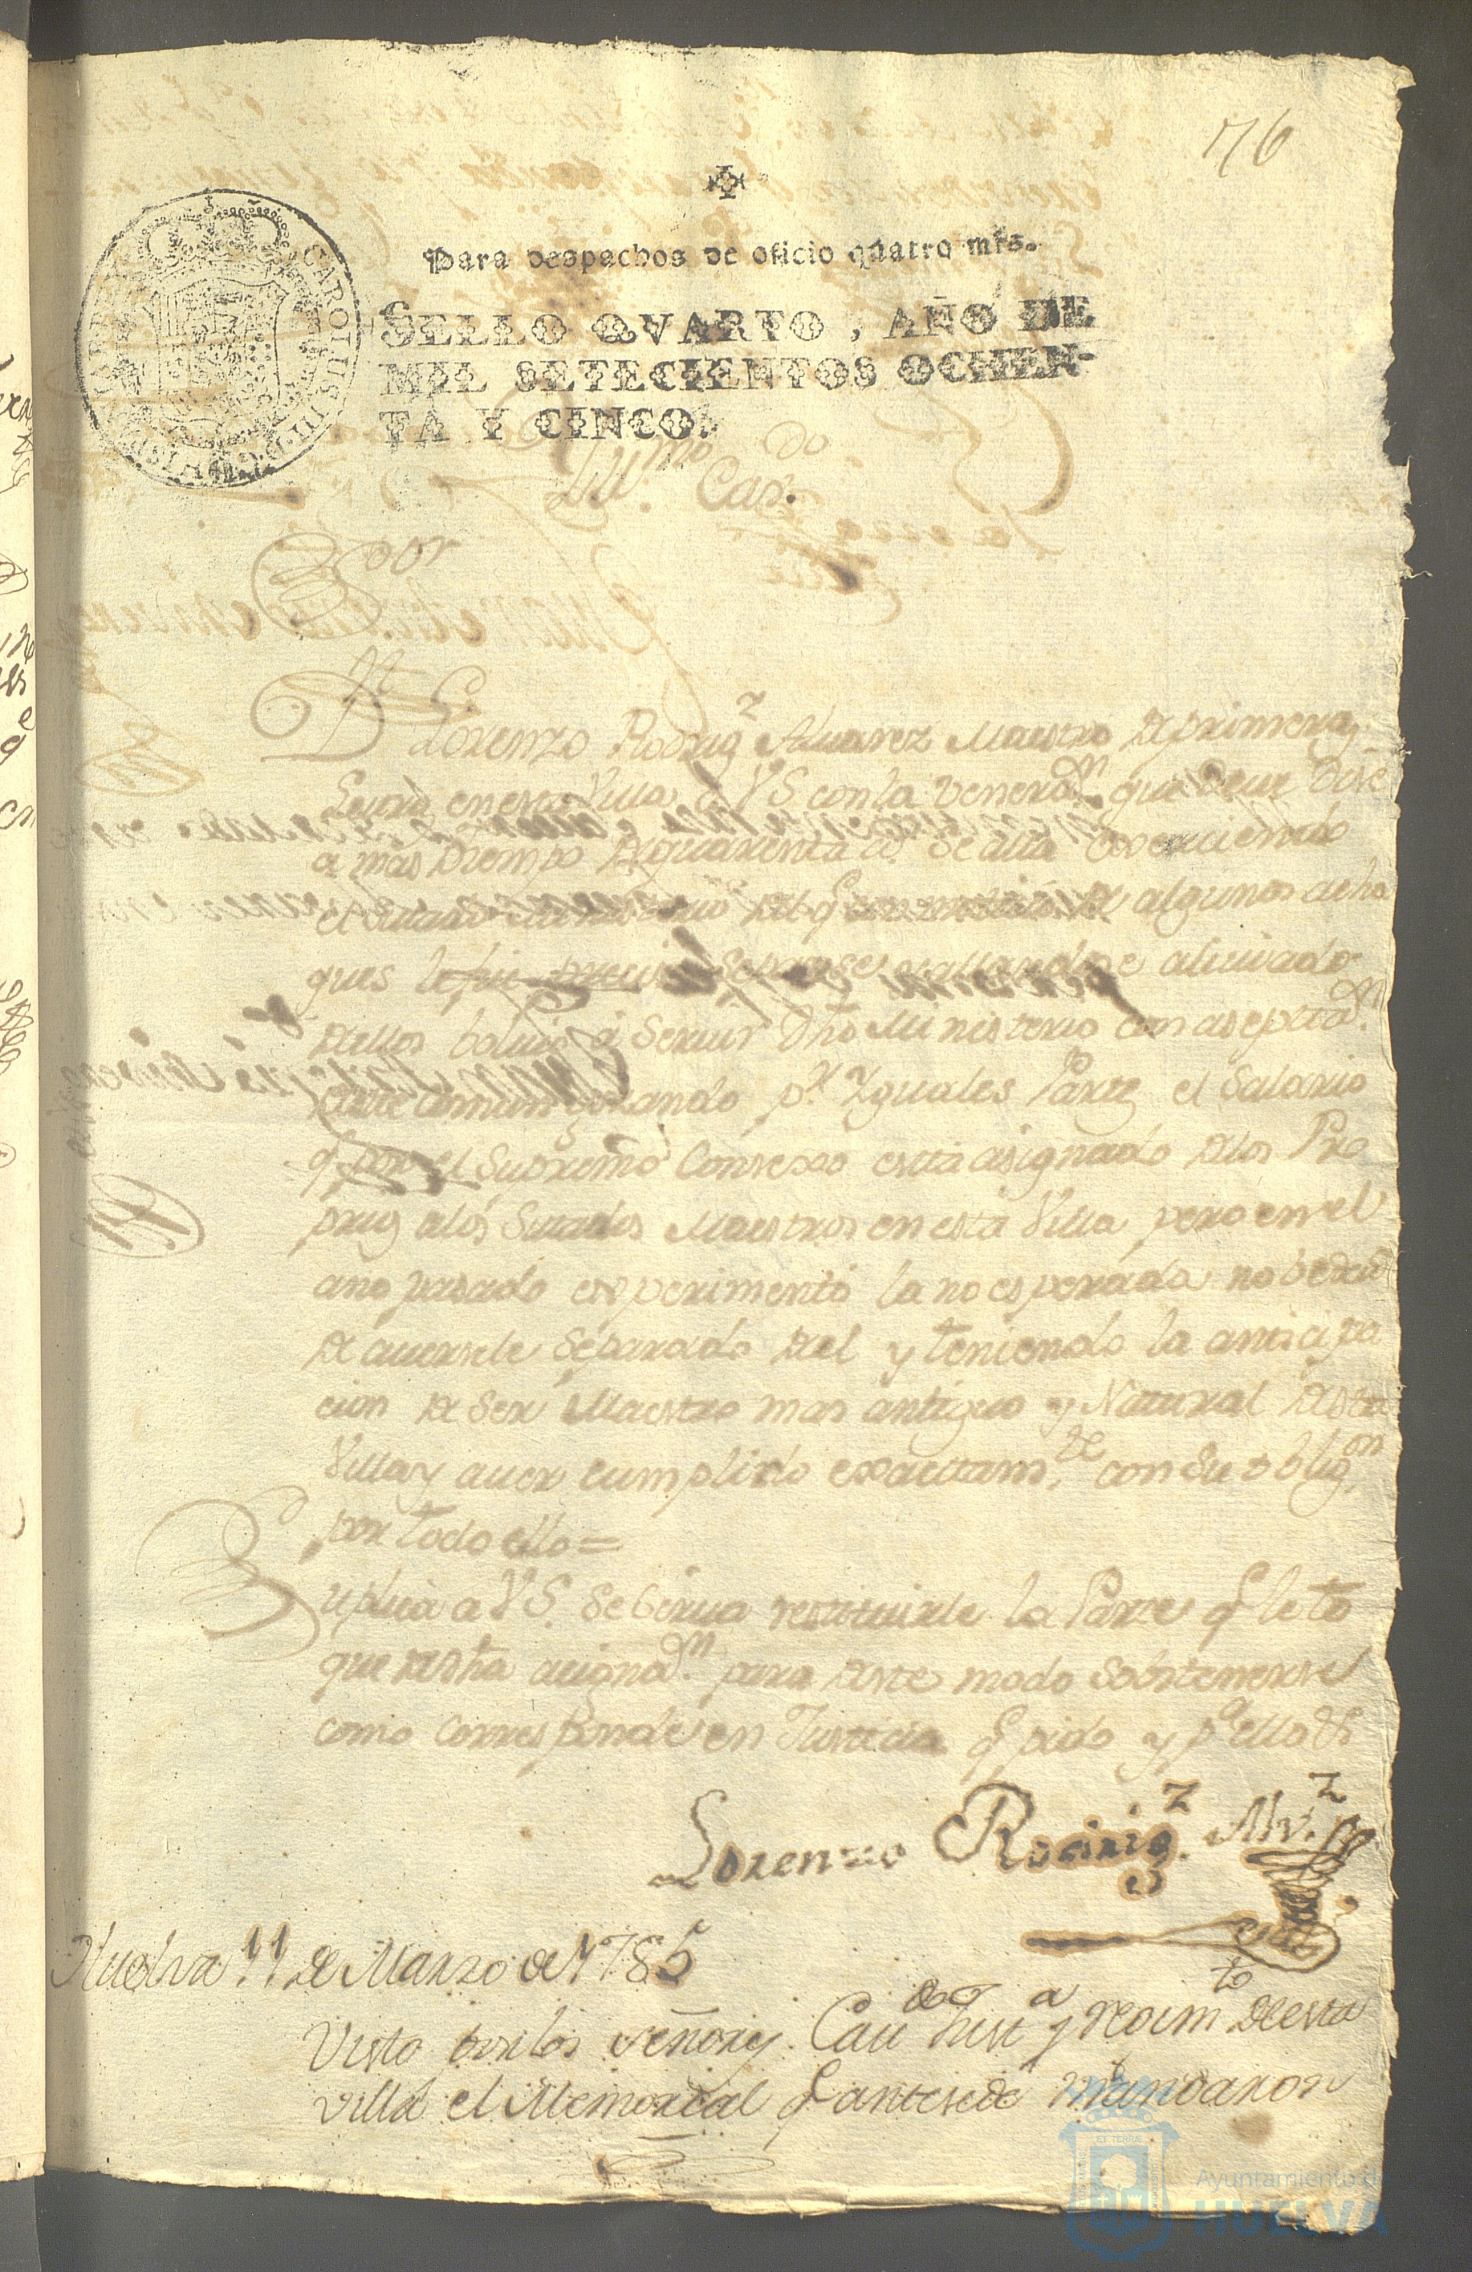 76
Para despachos de oficio quatro mrs.
SELLO QVARTO, AÑO DE
MIL SETECIENTOS OCHEN-
TA Y CINCO.
CAROLUS III D G HISP
Illmo. Cavdo.
Sor
Dn. Lorenzo Rodrigz Alvarez Maestro de primeras
Letras en esta Villa a VS con la venerazn. que deve Dise
a mas tiempo de quarenta as. se alla exerciendo
el de algunos acha
ques le fue preciso separse y allandose aliviado
dellos bolvio a Servir dho Ministerio con aseptazn.
gozando pr. Yguales Partes el Salario
q por el Supremo Consexo esta asignado de los Pro
prios a los Maestros en esta Villa pero en el
año pasado experimentó la no esperada nobedad
de averlele separado del y teniendo la anticipa
cion de ser Maestro mas antiguo y Natural desta
Villa y aver cumplido exactamte. con su obligon.
por todo ello =
Suplica a VS. se sirva restituirle la Parte q le to
que desha asignazn. para deste modo sobstenerse
como corresponde en Justicia q pido y pa ello &
Lorenzo Rodrigz. Alvz.
Huelva 11 de Marzo de 1785
Visto por los señores Cavdo Justa y reximto de esta
villa el Memorial q antesede mandaron
ET TERRÆ
Ayuntamiento de
HUELVA